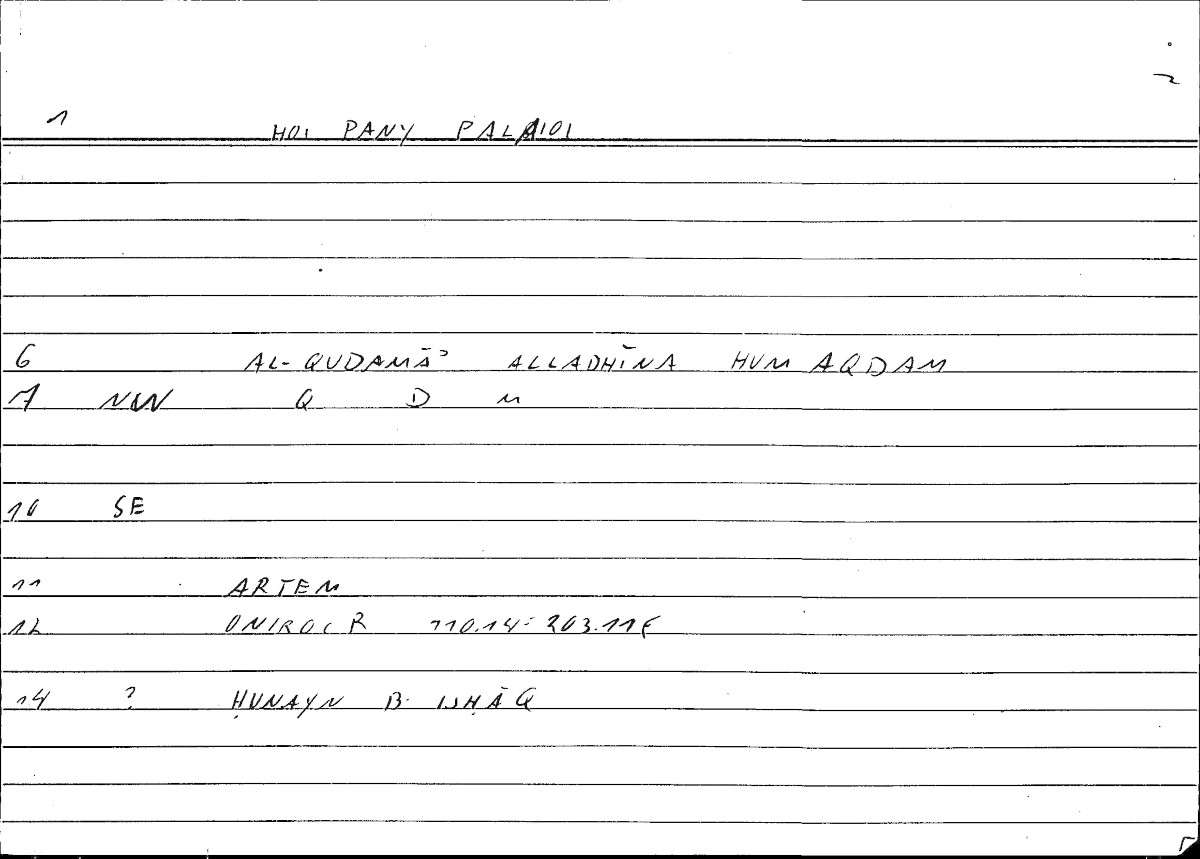 1 HOI PANY PALAIOI
6 AL-QUDAMĀʾ ALLADHĪNA HUM AQDAM
7 NW Q D M
10 SE
11 ARTEM
12 ONIROCR 110.14: 203.11f
14 ? ḤUNAYN B. ISḤĀQ